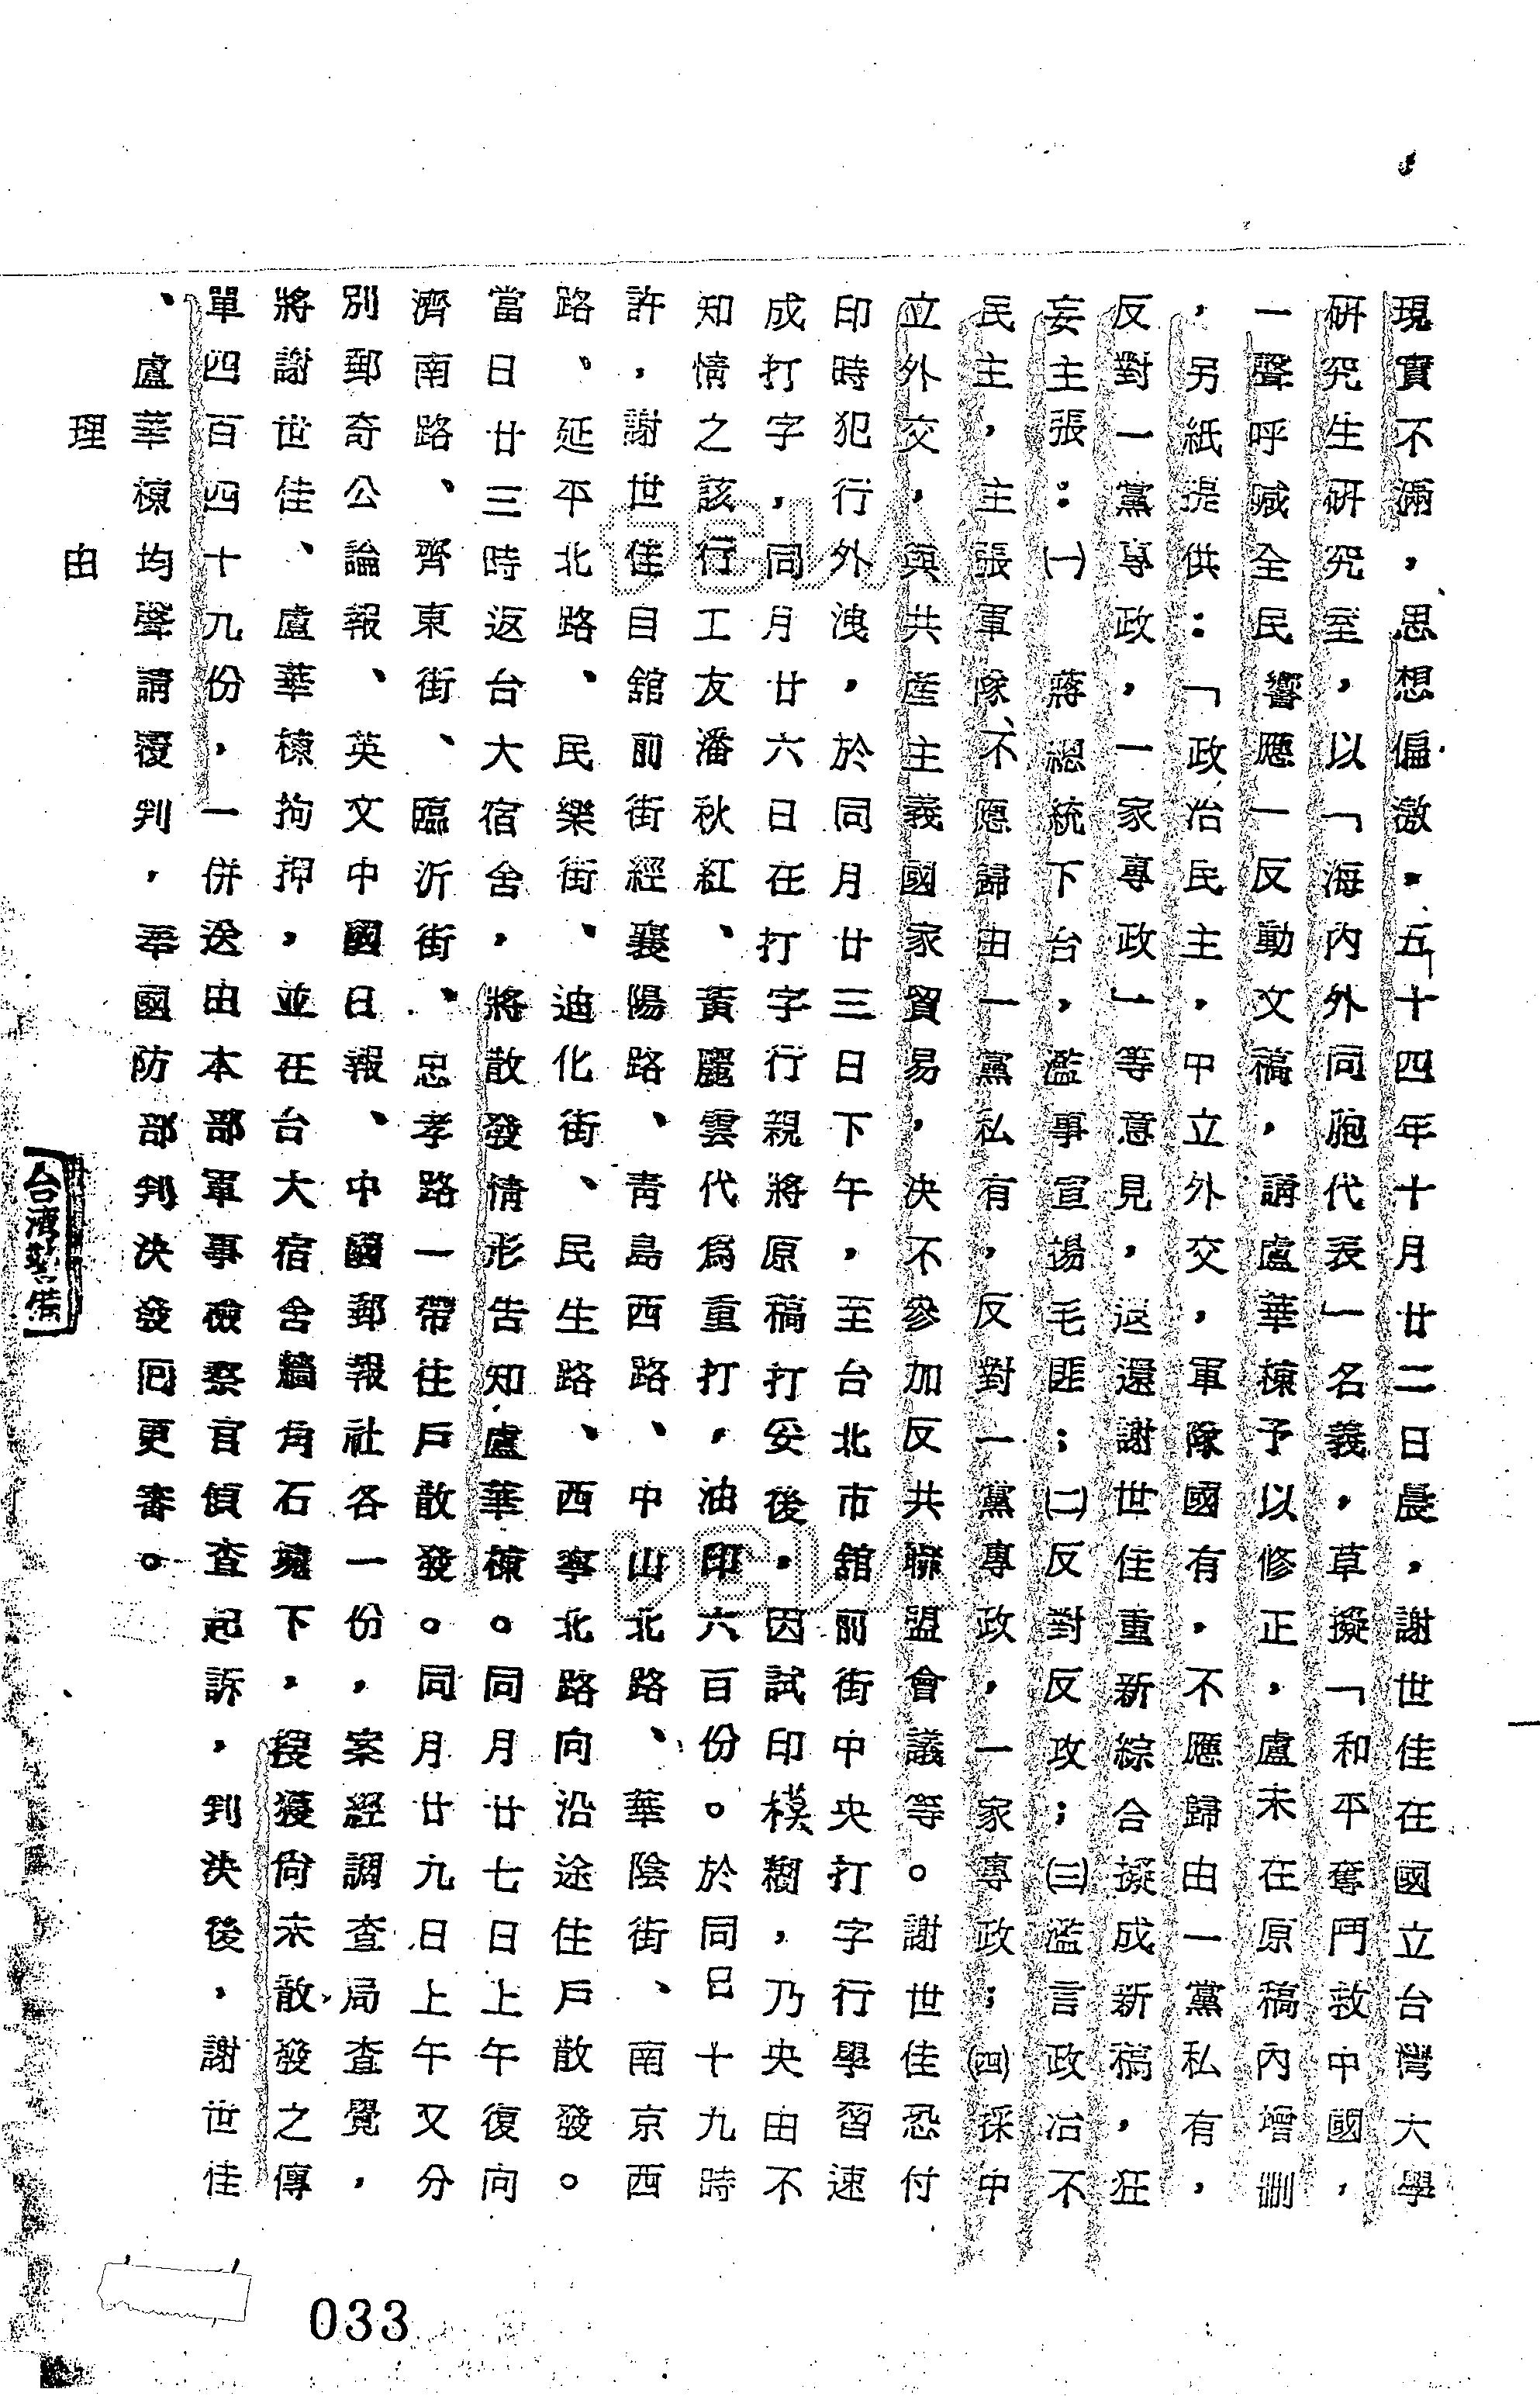 現實不滿，思想偏激。五十四年十月廿二日晨，謝世佳在國立台灣大學
研究生研究室，以「海內外同胞代表」名義，草擬「和平奪鬥救中國，
一聲呼喊全民響應」反動文稿，請盧華棟予以修正，盧未在原稿內增刪
，另紙提供：「政治民主，中立外交，軍隊國有，不應歸由一黨私有，
反對一黨專政，一家專政」等意見，返還謝世佳重新綜合擬成新稿，狂
妄主張：㈠蔣總統下台，濫事宣揚毛匪；㈡反對反攻；㈢濫言政治不
民主，主張軍隊不應歸由一黨私有，反對一黨專政，一家專政；㈣採中
立外交，與共產主義國家貿易，決不參加反共聯盟會議等。謝世佳恐付
印時犯行外洩，於同月廿三日下午，至台北市舘前街中央打字行學習速
成打字，同月廿六日在打字行親將原稿打妥後，因試印模糊，乃央由不
知情之該行工友潘秋紅、黃麗雲代為重打，油印六百份。於同日十九時
許，謝世佳自舘前街經襄陽路、青島西路、中山北路、華陰街、南京西
路、延平北路、民樂街、迪化街、民生路、西寧北路向沿途住戶散發。
當日廿三時返台大宿舍，將散發情形告知盧華棟。同月廿七日上午復向
濟南路、齊東街、臨沂街、忠孝路一帶住戶散發。同月廿九日上午又分
別郵寄公論報、英文中國日報、中國郵報社各一份，案經調查局查覺，
將謝世佳、盧華棟拘押，並在台大宿舍牆角石塊下，搜獲尚未散發之傳
單四百四十九份，一併送由本部軍事檢察官偵查起訴，判決後，謝世佳
、盧華棟均聲請覆判，奉國防部判決發回更審。
理由
台灣警備
033